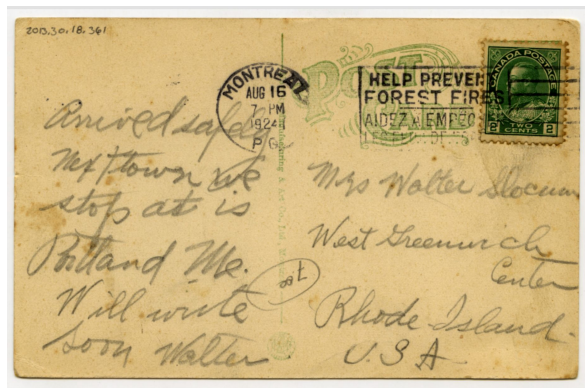 2013.30.18.361
POST CARD
MONTREAL
AUG 16
7 PM
1924
P.Q.
HELP PREVENT
FOREST FIRES
AIDEZ A EMPEC
CANADA POSTAGE
2 CENTS 2
Arrived safely
Next town we
stop at is
Portland Me.
Will write
soon Walter
Mrs Walter Slocum
West Greenwich
Center
Rhode Island.
U.S.A